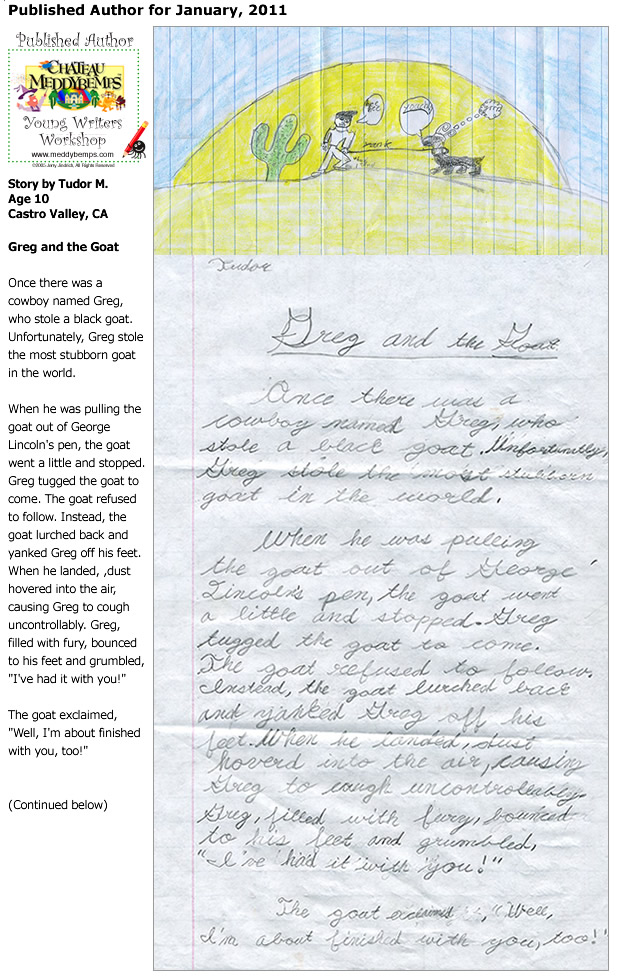 Published Author for January, 2011
Published Author
CHATEAU
MEDDYBEMPS
Young Writers
Workshop
www.meddybemps.com
©2005 Jerry Jindrich, All Rights Reserved
Story by Tudor M.
Age 10
Castro Valley, CA
Greg and the Goat
Once there was a
cowboy named Greg,
who stole a black goat.
Unfortunately, Greg stole
the most stubborn goat
in the world.
When he was pulling the
goat out of George
Lincoln's pen, the goat
went a little and stopped.
Greg tugged the goat to
come. The goat refused
to follow. Instead, the
goat lurched back and
yanked Greg off his feet.
When he landed, ,dust
hovered into the air,
causing Greg to cough
uncontrollably. Greg,
filled with fury, bounced
to his feet and grumbled,
"I've had it with you!"
The goat exclaimed,
"Well, I'm about finished
with you, too!"
(Continued below)
yank
Tudor
Greg and the Goat
Once there was a
cowboy named Greg, who
stole a black goat. Unfortunatly,
Greg stole the most stubborn
goat in the world.
When he was pulling
the goat out of George
Lincoln's pen, the goat went
a little and stopped. Greg
tugged the goat to come.
The goat refused to follow.
Instead, the goat lurched back
and yanked Greg off his
feet. When he landed, dust
hoverd into the air, causing
Greg to cough uncontrollably.
Greg, filled with fury, bounced
to his feet and grumbled,
"I've had it with you!"
The goat exclaimed, "Well,
I'm about finished with you, too!"